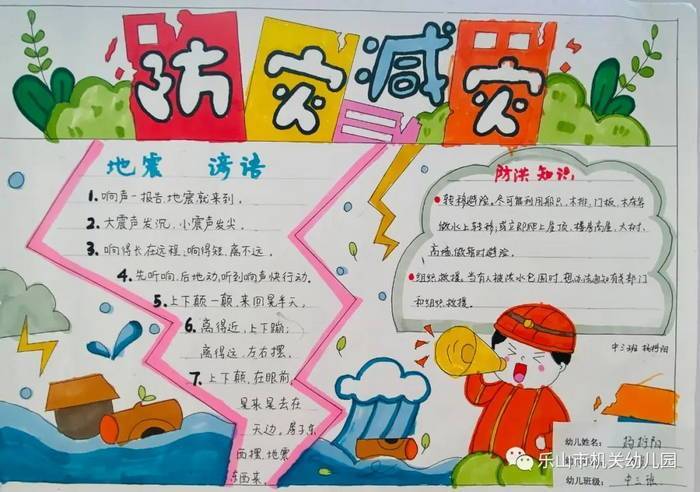 防灾减灾
地震 谚语
1. 响声一报告,地震就来到。
2. 大震声发沉,小震声发尖。
3. 响得长在远程,响得短,离不远。
4. 先听响,后地动,听到响声快行动。
5. 上下颠一颠,来回晃半天。
6. 离得近,上下蹦;
离得远,左右摆。
7. 上下颠,在眼前,
晃来晃去在
天边。房子东
西摆,地震
东西来。
防洪知识
转移避险,尽可能利用船只、木排、门板、木床等
做水上转移,或立即爬上屋顶、楼房高屋、大树、
高墙,做暂时避险。
组织救援。当有人被洪水包围时,想办法通知有关部门
和组织救援。
中三班 杨
幼儿姓名: 杨
幼儿班级: 中三班
乐山市机关幼儿园